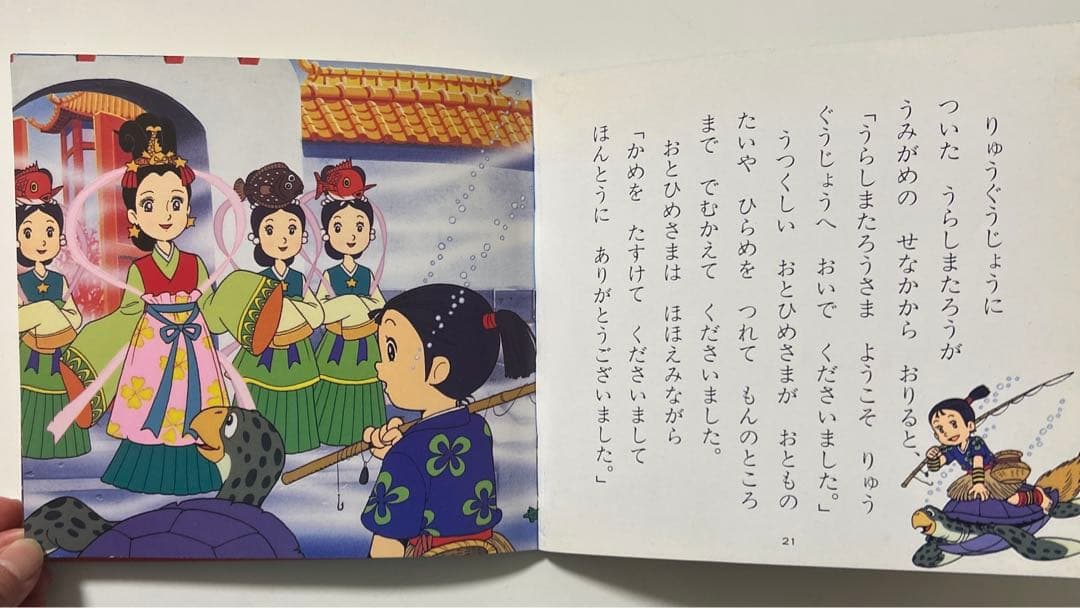 りゅうぐうじょうに
ついた　うらしまたろうが
うみがめの　せなかから　おりると、
「うらしまたろうさま　ようこそ　りゅう
ぐうじょうへ　おいで　くださいました。」
うつくしい　おとひめさまが　おともの
たいや　ひらめを　つれて　もんのところ
まで　でむかえて　くださいました。
おとひめさまは　ほほえみながら
「かめを　たすけて　くださいまして
ほんとうに　ありがとうございました。」
21